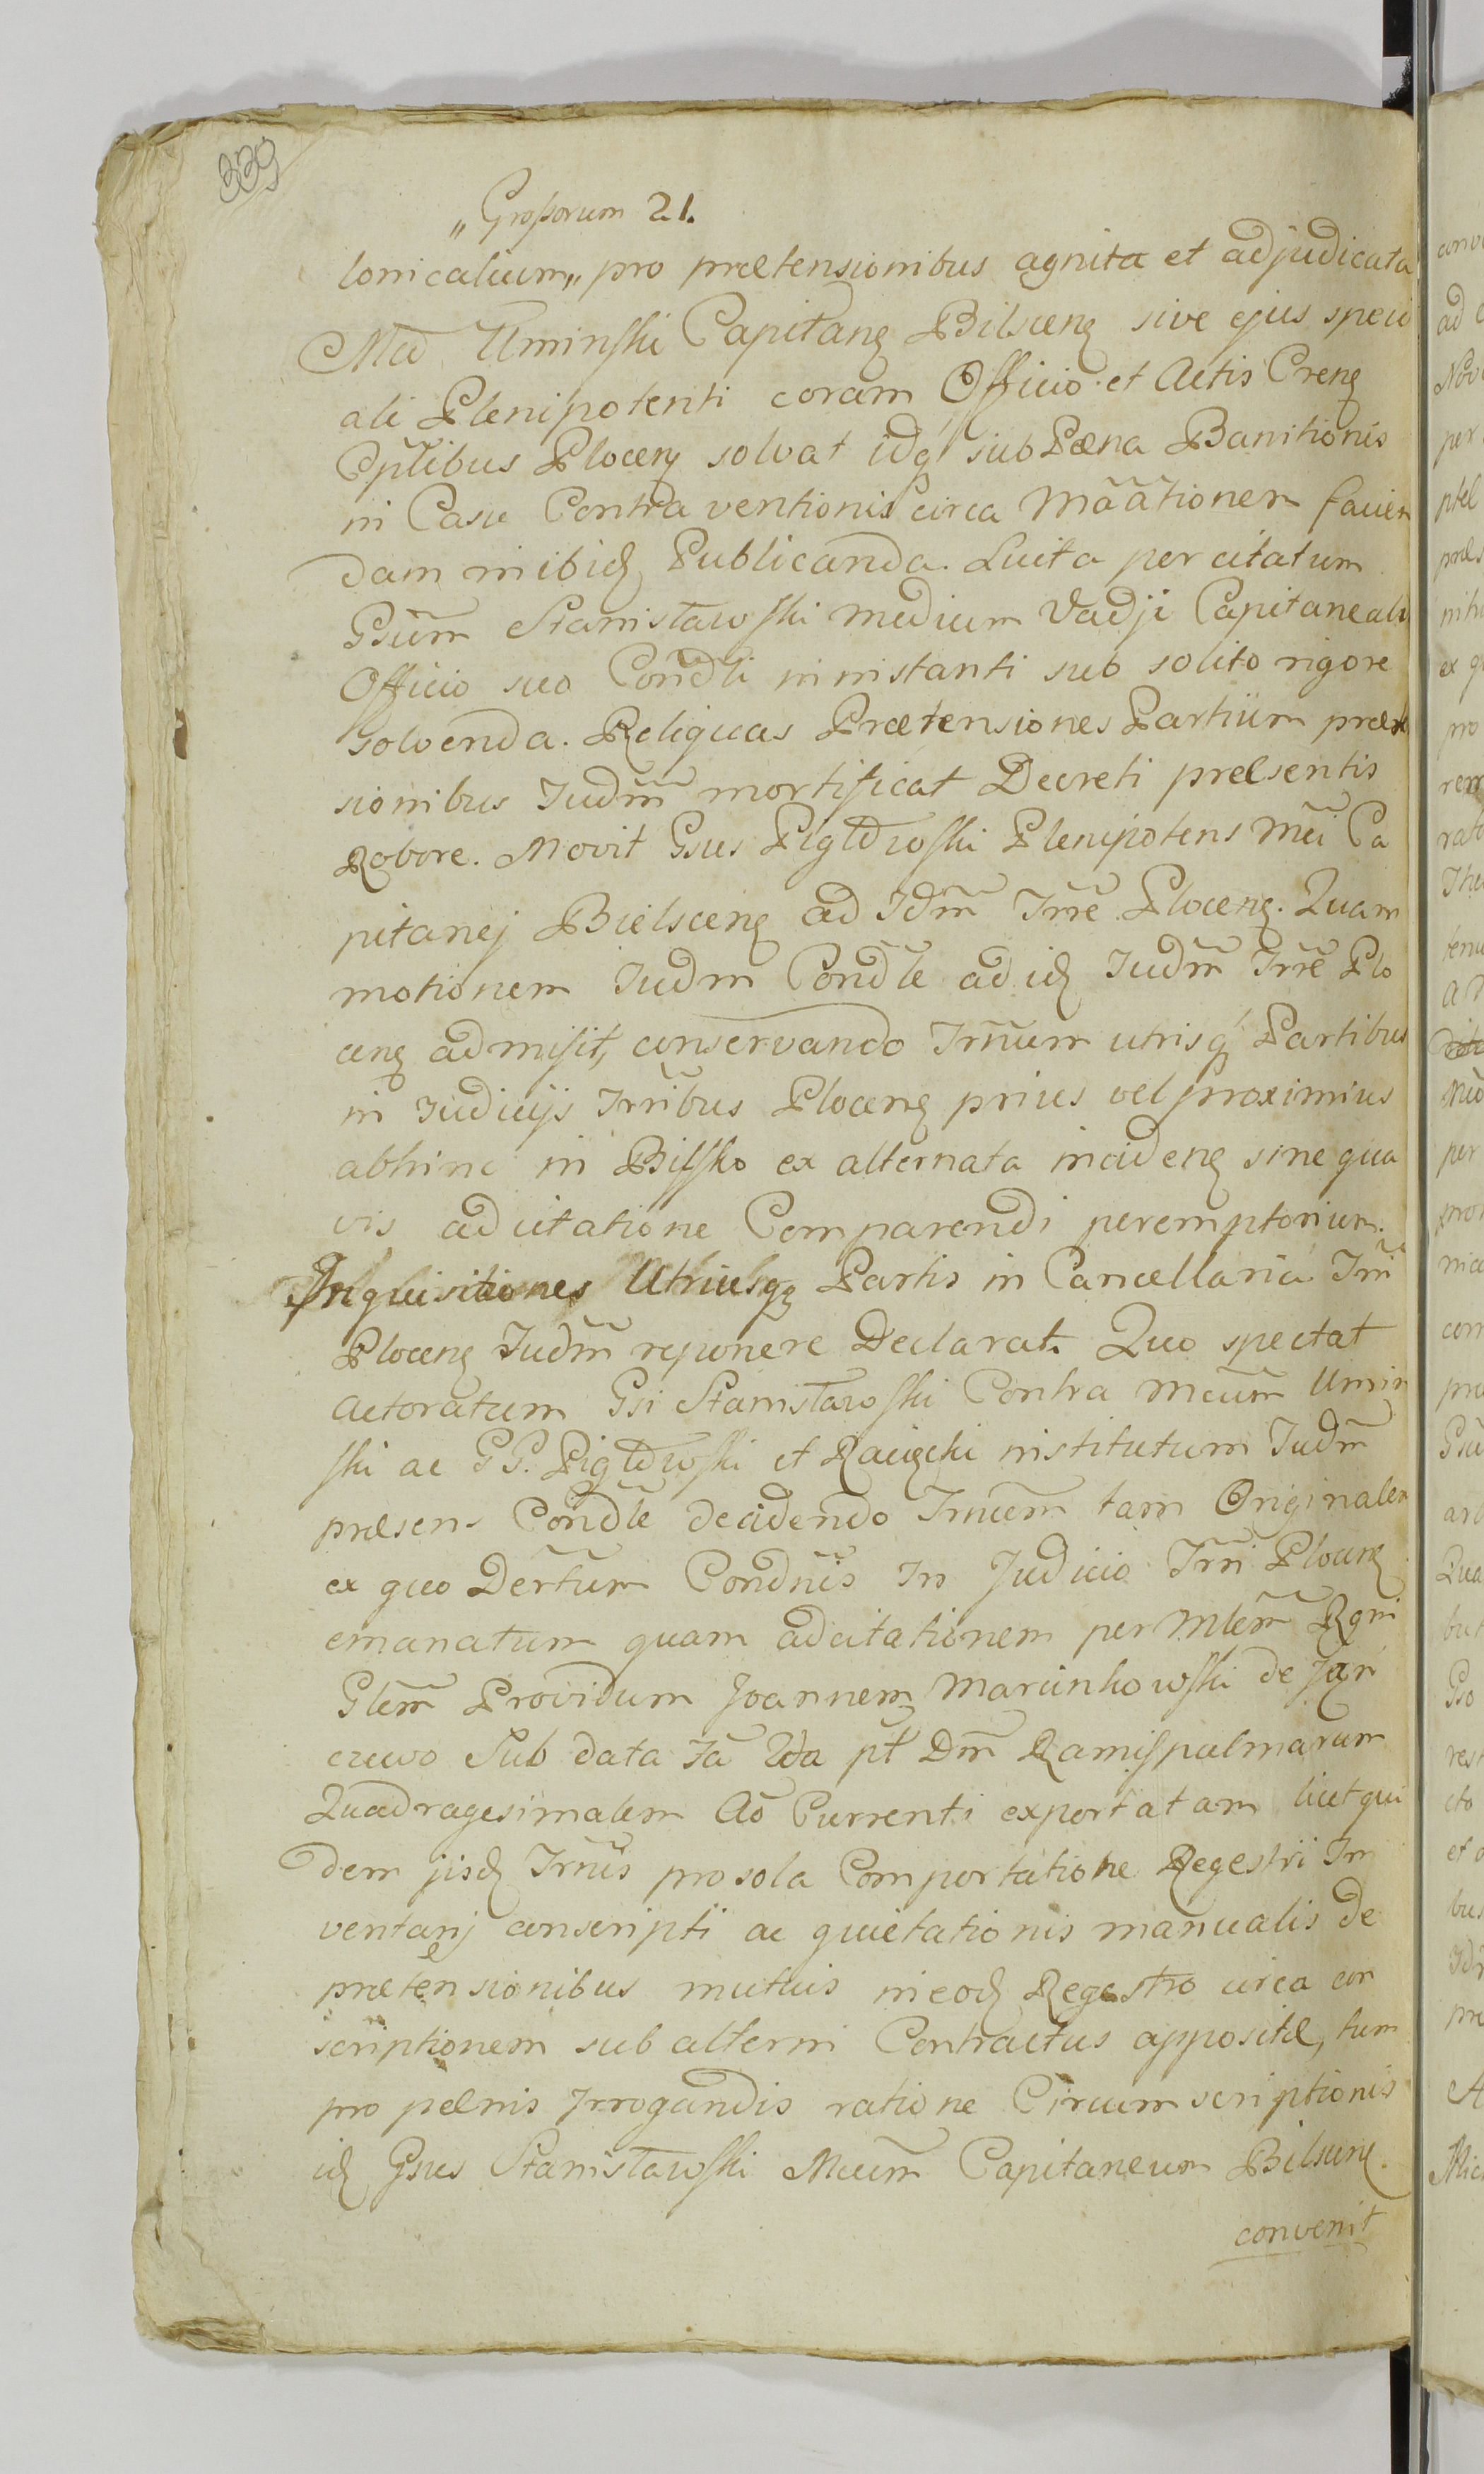 339
„Grossorum 21.
lonicalium„ pro prætensionibus agnita et adjudicata
Mco Uminski Capitan Bilscen sive ejus speci
ali Plenipotenti coram Officio et Actis Cren
Cptlibus Plocen solvat idq sub Pæna Banitionis
in Casu Contraventionis circa Mãationem facien
dam inibid Publicanda. Luita per citatum
Gsũm Stanisławski medium Vadji Capitaneali
Officio suo Condli in instanti sub solito rigore
solvenda. Reliquas Prætensiones Partium præten
sionibus Iudm̃ mortificat Decreti præsentis
Robore. Movit Gsus Pigłowski Plenipotens Mci Ca
pitanej Bielscen ad Idm̃ Trre Plocen. Quam
motionem Iudm Condle ad id Iudm̃ Trre Plo
cen admisit, conservando Trñum utrisq Partibus
in Iudicijs Trribus Plocen prius vel proximius
abhinc in Bilsko ex alternata inciden sine qua
vis adcitatione Comparendi peremptorium.
Inquisitiones Utriusq Partis in Cancellaria Trri
Plocen Iudm̃ reponere Declarat. Quo spectat
Actoratum Gsi Stanisławski Contra Mcum Umin
ski ac GG. Pigłowski et Raciecki institutum Iudm̃
præsens Condle decidendo Trñum tam Originalem
ex quo Dertum Condnis In Judicio Trri Plocen
emanatum quam adcitationem per Mlem̃ Rgni
Glem̃ Providum Joannem Marcinkowski de Jan
czewo Sub data ꝼa 2da pt Dm̃ Ramispalmarum
Quadragesimalem Aõ Currenti exportatam licet qui
dem jisd Trñis pro sola Comportatione Regestri In
ventarij conscripti ac quietationis manualis de
prætensionibus mutuis in eod Regestro circa con
scriptionem subalterni Contractus appositæ, tum
pro pænis Irrogandis ratione Circumscriptionis
id Gsus Stanisławski Mcum Capitaneum Bilscen.
convenit